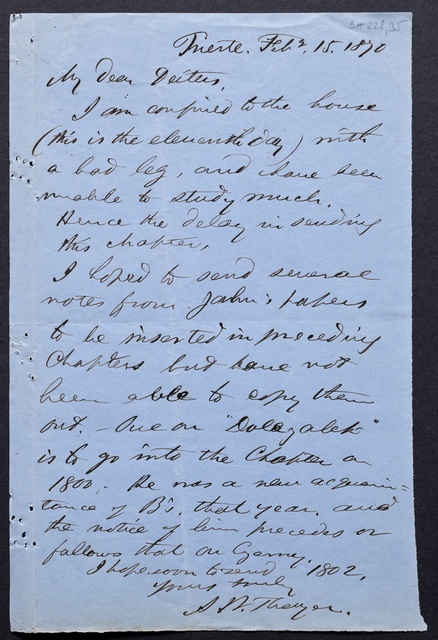 BH 228, 35
Trieste. Feb'r. 15. 1870
My dear Deiters,
I am confined to the house
(this is the eleventh day) with
a bad leg, and have been
unable to study much.
Hence the delay in sending
this chapter.
I hoped to send several
notes from Jahn's papers
to be inserted in preceding
Chapters but have not
been able to copy them
out. – One on "Dolezalek"
is to go into the Chapter on
1800. He was a new acquain=
tance of B's. that year, and
the notice of him precedes or
follows that on Czerny.
I hope soon to send 1802.
Yours truly
A. W. Thayer.